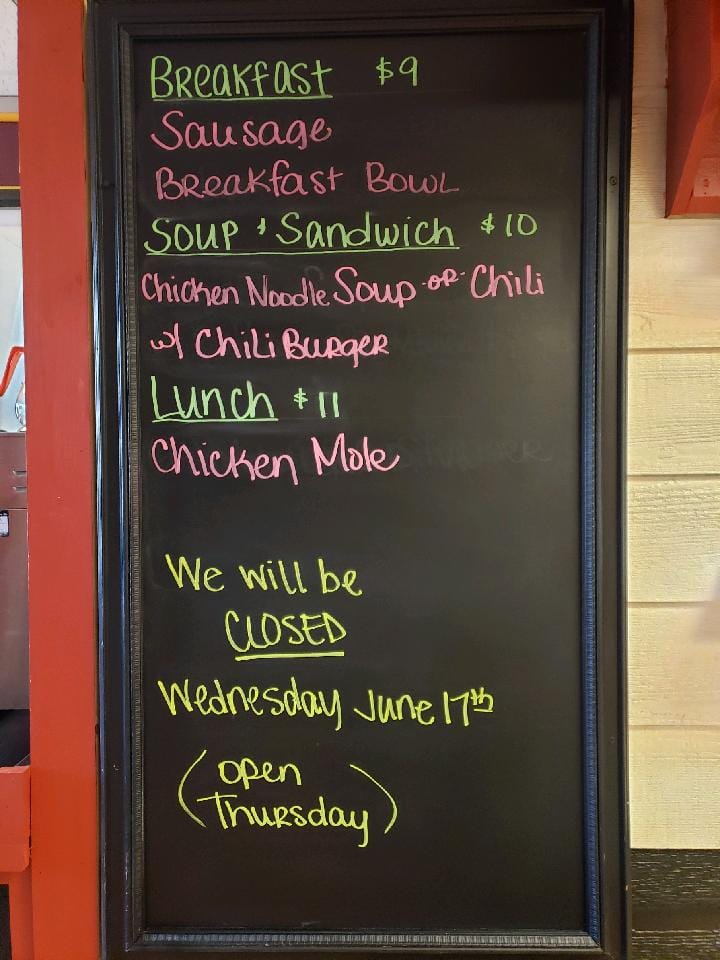 Breakfast $9
Sausage
Breakfast Bowl
Soup & Sandwich $10
Chicken Noodle Soup -or- Chili
w/ Chili Burger
Lunch $11
Chicken Mole
We will be
CLOSED
Wednesday June 17th
(open
Thursday)